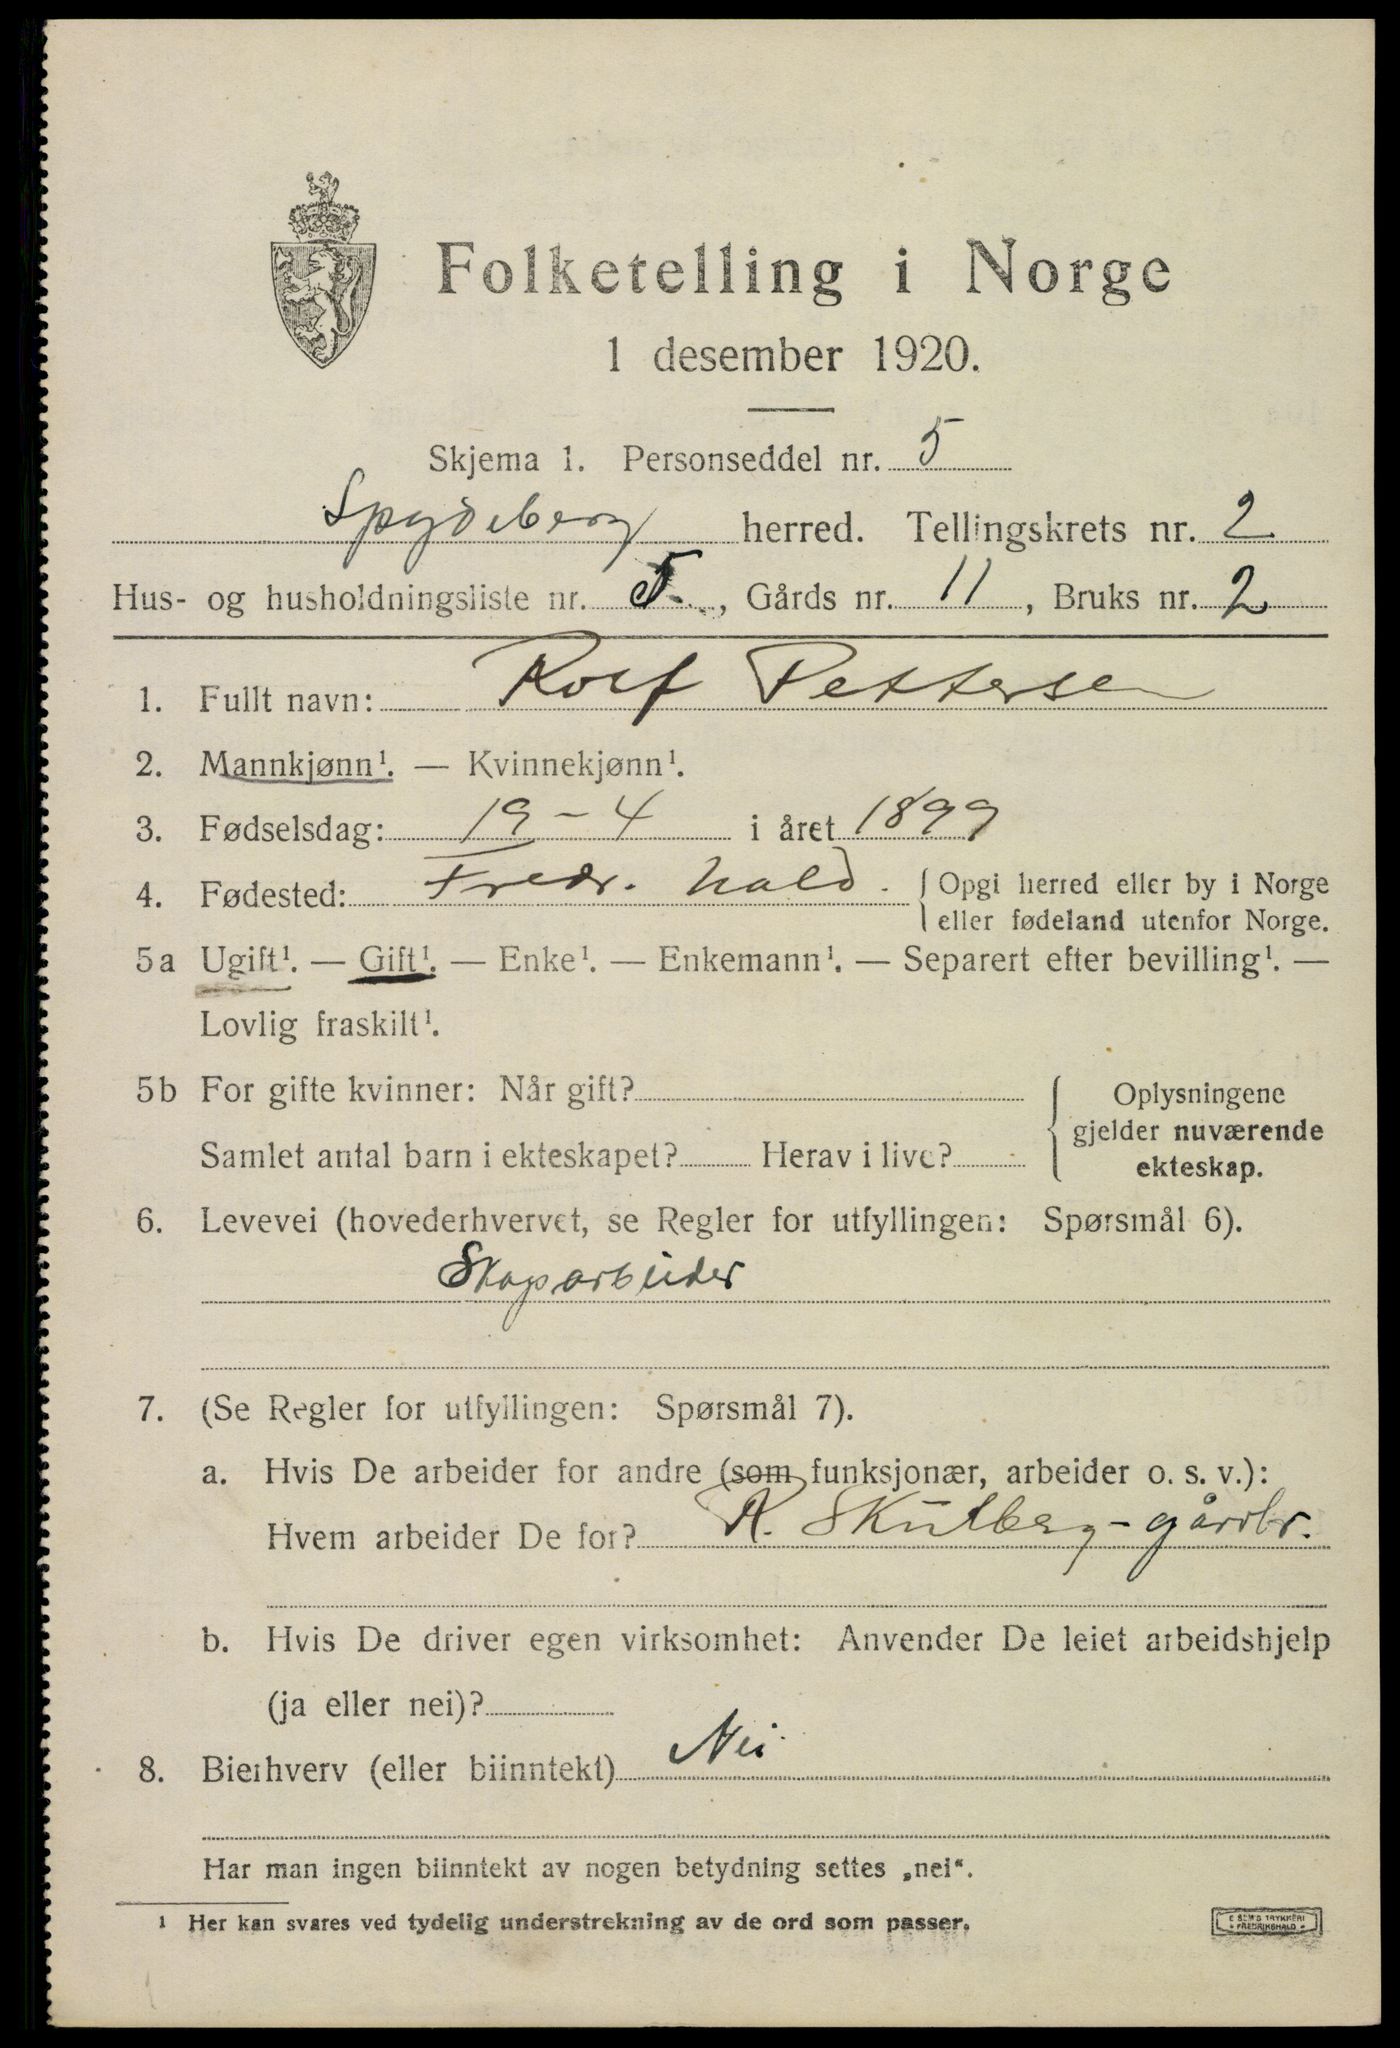 Folketelling i Norge
1 desember 1920.
Skjema 1. Personseddel nr. 5
Spydeberg herred. Tellingskrets nr. 2
Hus- og husholdningsliste nr. 5, Gårds nr. 11, Bruks nr. 2
1. Fullt navn: Rolf Pettersen
2. Mannkjønn¹. — Kvinnekjønn¹.
3. Fødselsdag: 19-4 i året 1899
4. Fødested: Fredr. hald. Opgi herred eller by i Norge
eller fødeland utenfor Norge.
5a Ugift¹. — Gift¹. — Enke¹. — Enkemann¹. — Separert efter bevilling¹. —
Lovlig fraskilt¹.
5b For gifte kvinner: Når gift?
Samlet antal barn i ekteskapet? Herav i live?
Oplysningene
gjelder nuværende
ekteskap.
6. Levevei (hovederhvervet, se Regler for utfyllingen: Spørsmål 6).
Skogsarbeider
7. (Se Regler for utfyllingen: Spørsmål 7).
a. Hvis De arbeider for andre (som funksjonær, arbeider o. s. v.):
Hvem arbeider De for? R. Skulberg - gårdbr.
b. Hvis De driver egen virksomhet: Anvender De leiet arbeidshjelp
(ja eller nei)?
8. Bierhverv (eller biinntekt) Nei
Har man ingen biinntekt av nogen betydning settes „nei“.
¹ Her kan svares ved tydelig understrekning av de ord som passer.
E SEM'S TRYKKERI
FREDRIKSHALD